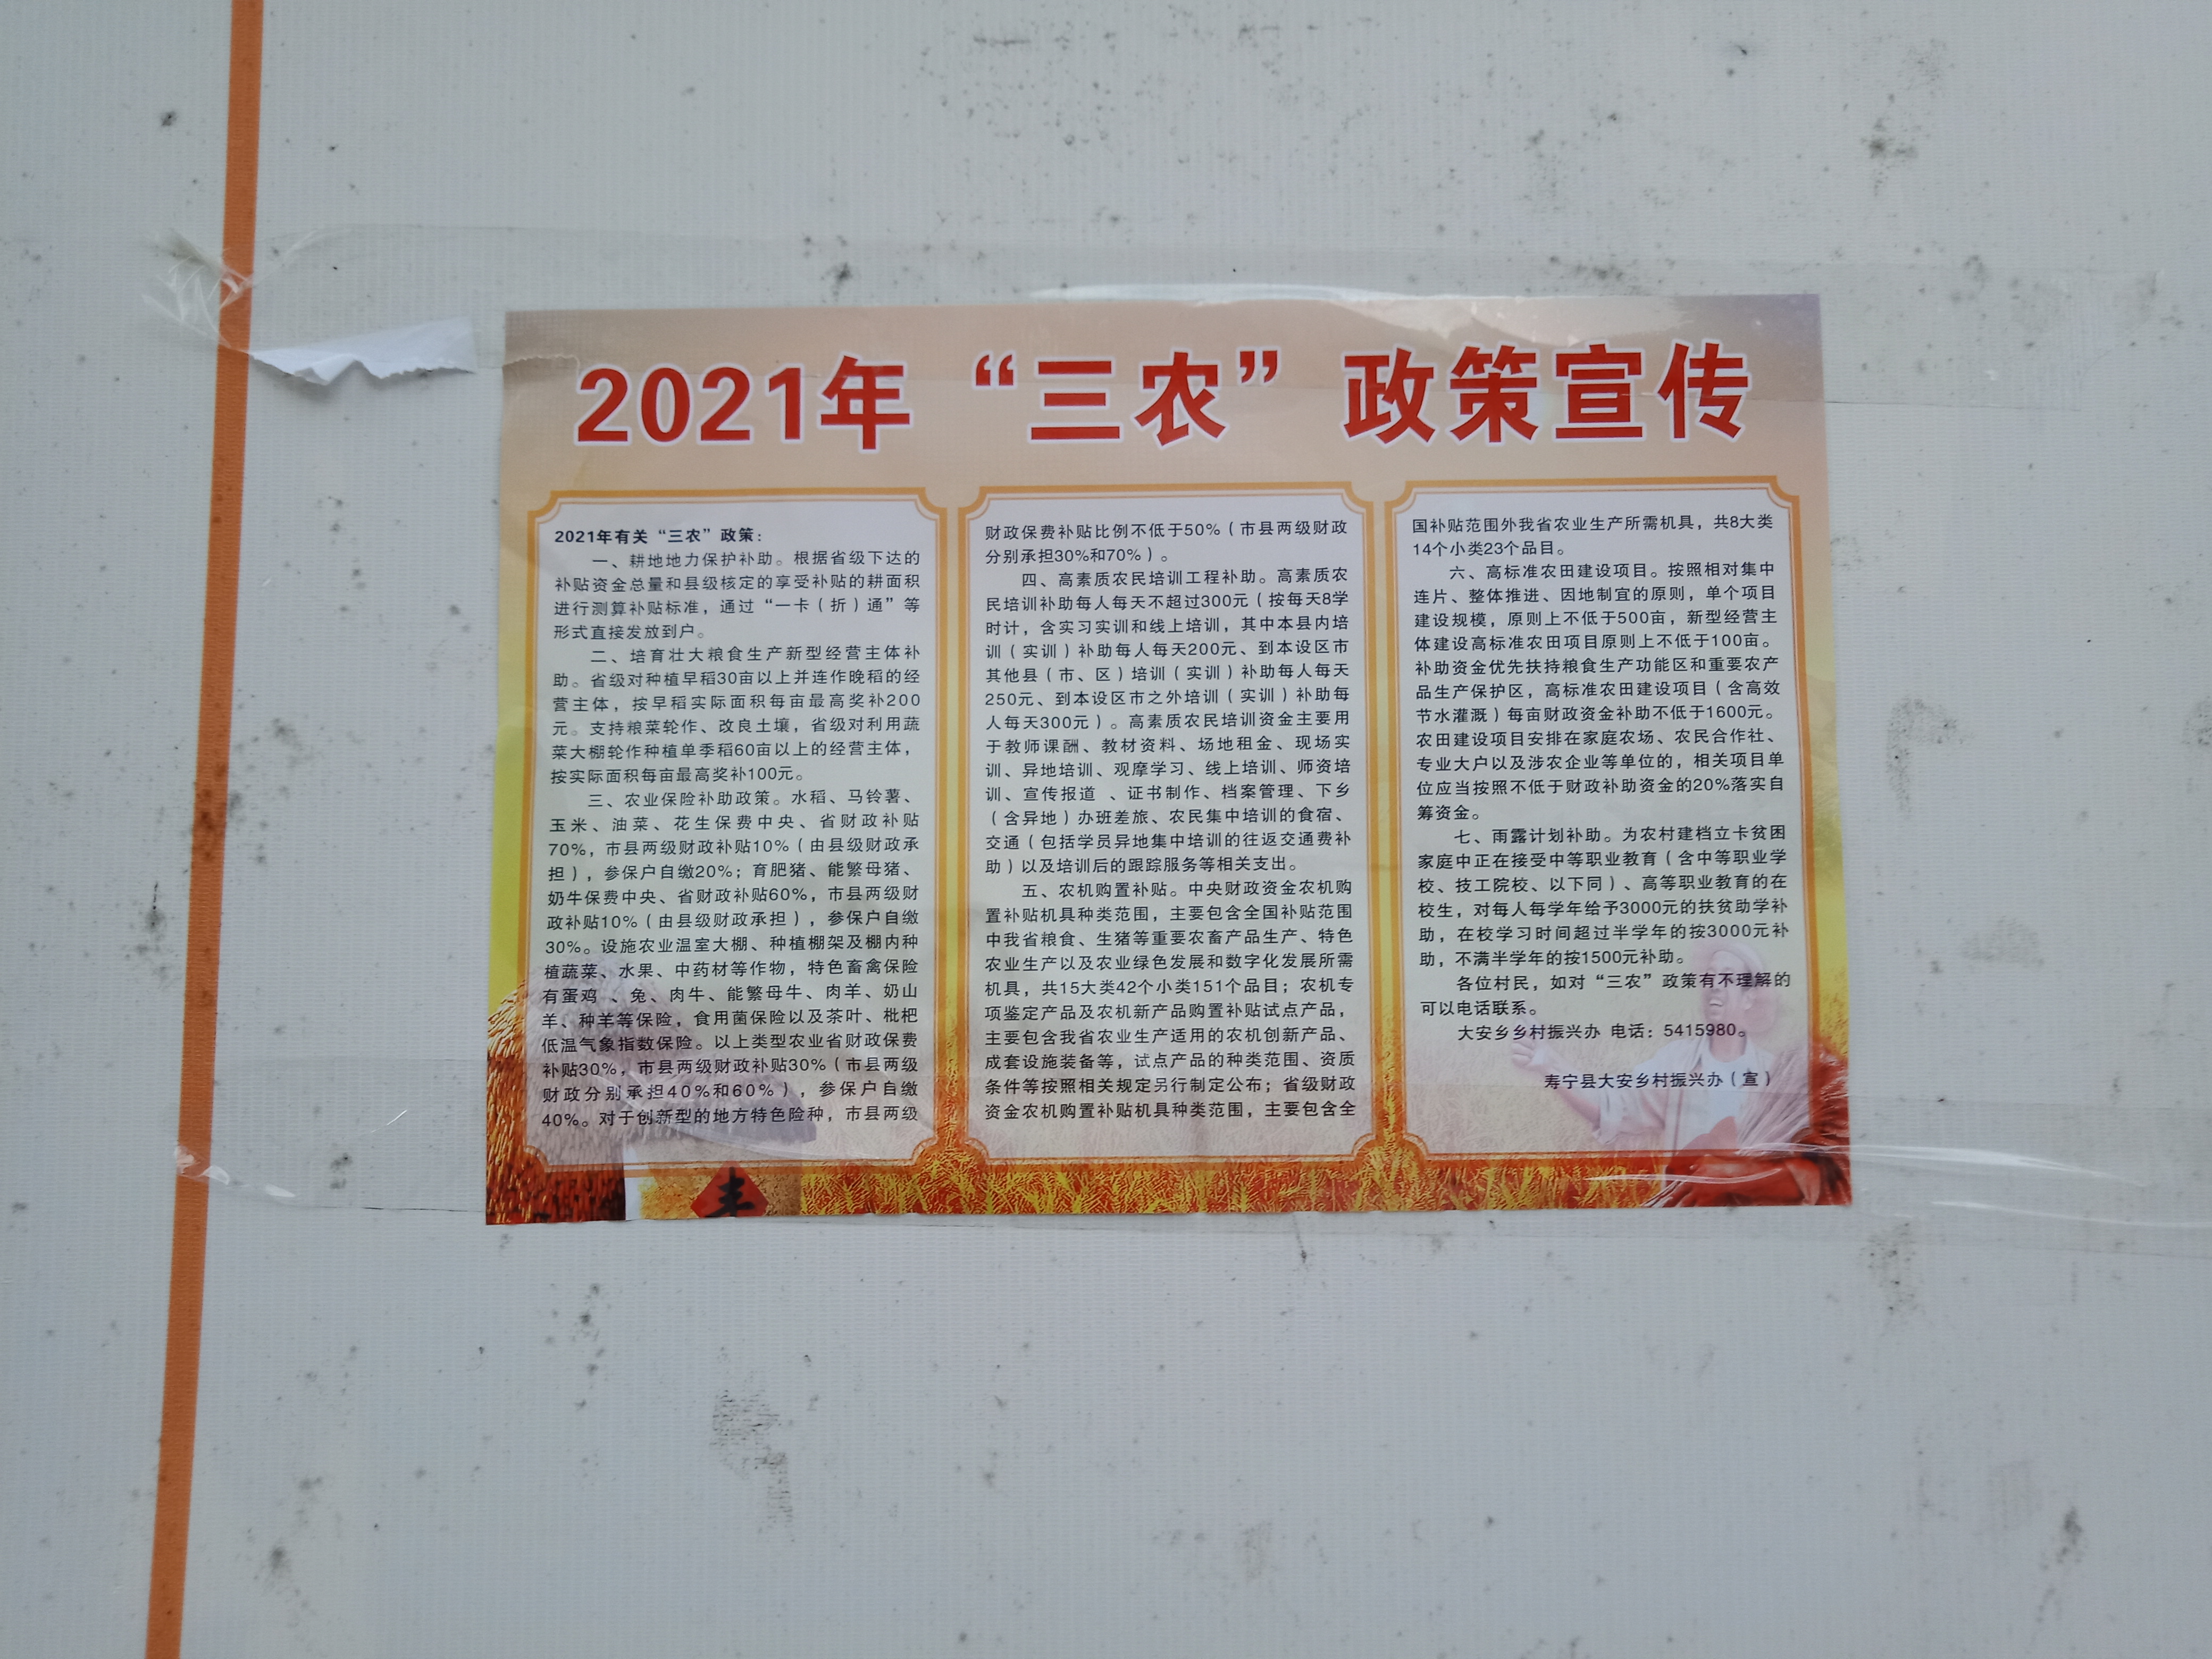 2021年“三农”政策宣传
2021年有关“三农”政策：
一、耕地地力保护补助。根据省级下达的
补贴资金总量和县级核定的享受补贴的耕面积
进行测算补贴标准，通过“一卡（折）通”等
形式直接发放到户。
二、培育壮大粮食生产新型经营主体补
助。省级对种植早稻30亩以上并连作晚稻的经
营主体，按早稻实际面积每亩最高奖补200
元。支持粮菜轮作、改良土壤，省级对利用蔬
菜大棚轮作种植单季稻60亩以上的经营主体，
按实际面积每亩最高奖补100元。
三、农业保险补助政策。水稻、马铃薯、
玉米、油菜、花生保费中央、省财政补贴
70%，市县两级财政补贴10%（由县级财政承
担），参保户自缴20%；育肥猪、能繁母猪、
奶牛保费中央、省财政补贴60%，市县两级财
政补贴10%（由县级财政承担），参保户自缴
30%。设施农业温室大棚、种植棚架及棚内种
植蔬菜、水果、中药材等作物，特色畜禽保险
有蛋鸡 、兔、肉牛、能繁母牛、肉羊、奶山
羊、种羊等保险，食用菌保险以及茶叶、枇杷
低温气象指数保险。以上类型农业省财政保费
补贴30%，市县两级财政补贴30%（市县两级
财政分别承担40%和60%），参保户自缴
40%。对于创新型的地方特色险种，市县两级
财政保费补贴比例不低于50%（市县两级财政
分别承担30%和70%）。
四、高素质农民培训工程补助。高素质农
民培训补助每人每天不超过300元（按每天8学
时计，含实习实训和线上培训，其中本县内培
训（实训）补助每人每天200元、到本设区市
其他县（市、区）培训（实训）补助每人每天
250元、到本设区市之外培训（实训）补助每
人每天300元）。高素质农民培训资金主要用
于教师课酬、教材资料、场地租金、现场实
训、异地培训、观摩学习、线上培训、师资培
训、宣传报道 、证书制作、档案管理、下乡
（含异地）办班差旅、农民集中培训的食宿、
交通（包括学员异地集中培训的往返交通费补
助）以及培训后的跟踪服务等相关支出。
五、农机购置补贴。中央财政资金农机购
置补贴机具种类范围，主要包含全国补贴范围
中我省粮食、生猪等重要农畜产品生产、特色
农业生产以及农业绿色发展和数字化发展所需
机具，共15大类42个小类151个品目；农机专
项鉴定产品及农机新产品购置补贴试点产品，
主要包含我省农业生产适用的农机创新产品、
成套设施装备等，试点产品的种类范围、资质
条件等按照相关规定另行制定公布；省级财政
资金农机购置补贴机具种类范围，主要包含全
国补贴范围外我省农业生产所需机具，共8大类
14个小类23个品目。
六、高标准农田建设项目。按照相对集中
连片、整体推进、因地制宜的原则，单个项目
建设规模，原则上不低于500亩，新型经营主
体建设高标准农田项目原则上不低于100亩。
补助资金优先扶持粮食生产功能区和重要农产
品生产保护区，高标准农田建设项目（含高效
节水灌溉）每亩财政资金补助不低于1600元。
农田建设项目安排在家庭农场、农民合作社、
专业大户以及涉农企业等单位的，相关项目单
位应当按照不低于财政补助资金的20%落实自
筹资金。
七、雨露计划补助。为农村建档立卡贫困
家庭中正在接受中等职业教育（含中等职业学
校、技工院校、以下同）、高等职业教育的在
校生，对每人每学年给予3000元的扶贫助学补
助，在校学习时间超过半学年的按3000元补
助，不满半学年的按1500元补助。
各位村民，如对“三农”政策有不理解的
可以电话联系。
大安乡乡村振兴办 电话：5415980。
寿宁县大安乡村振兴办（宣）